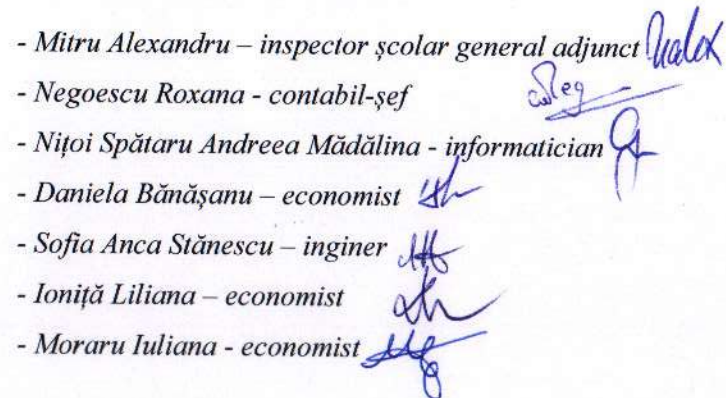 - Mitru Alexandru – inspector școlar general adjunct
- Negoescu Roxana - contabil-șef
- Nițoi Spătaru Andreea Mădălina - informatician
- Daniela Bănășanu – economist
- Sofia Anca Stănescu – inginer
- Ioniță Liliana – economist
- Moraru Iuliana - economist